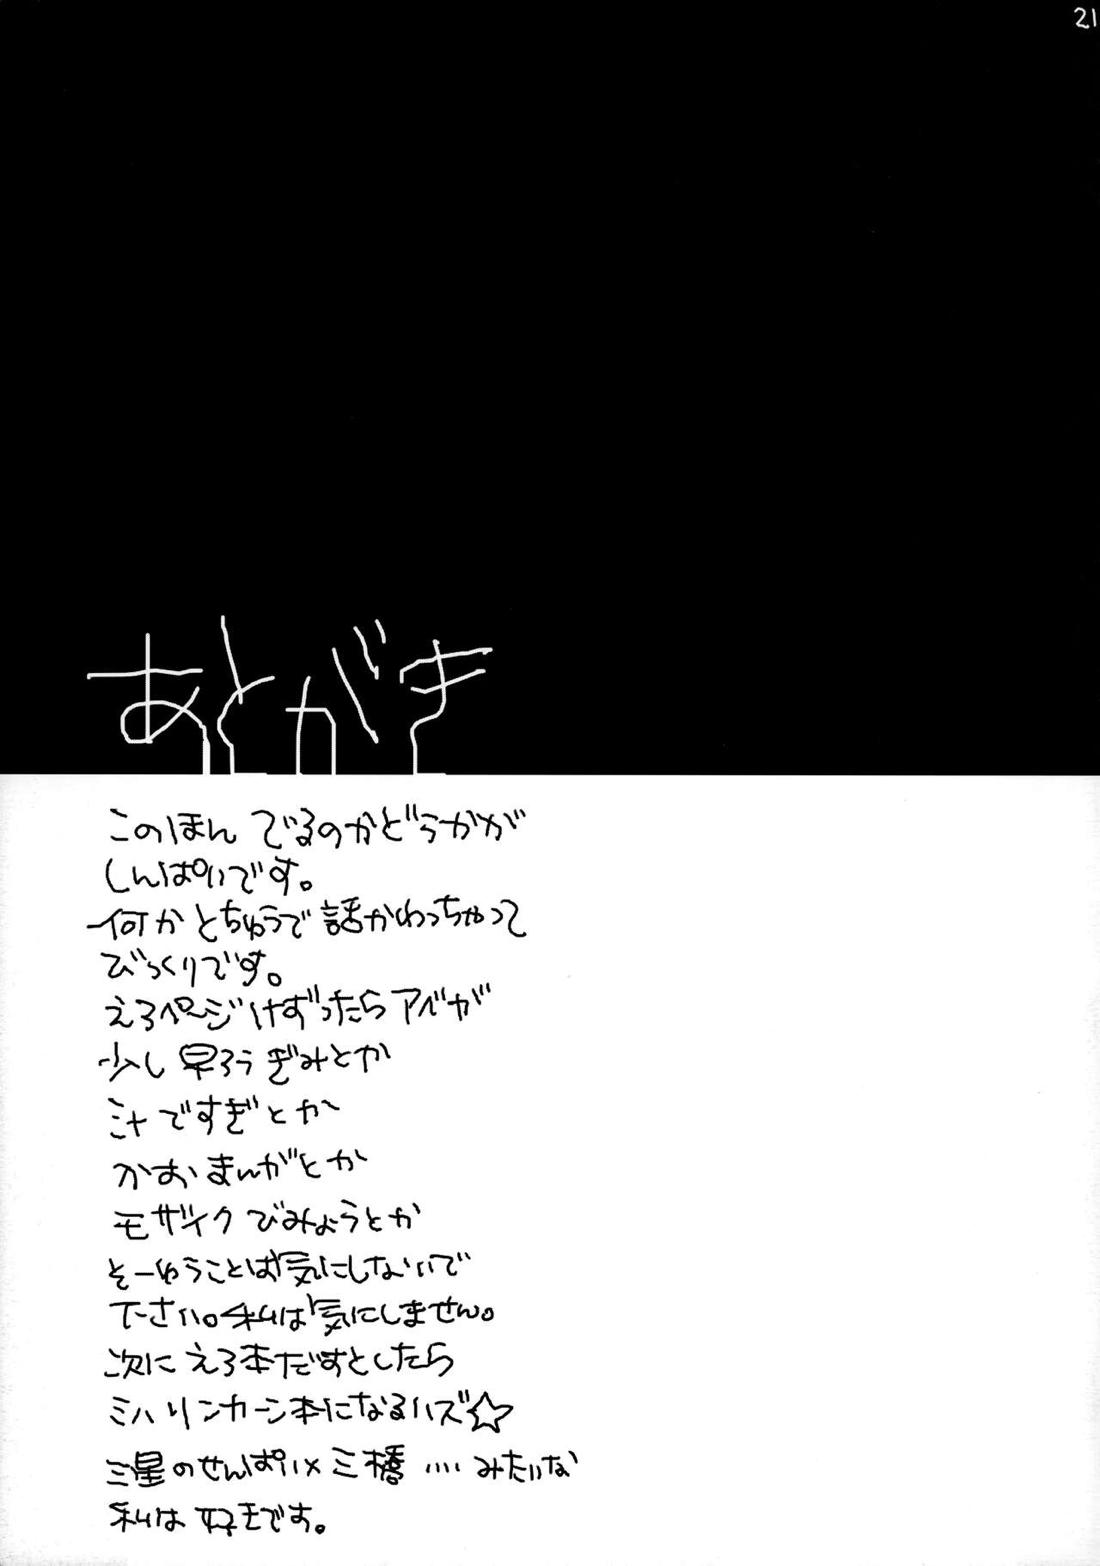 21
あとがき
このほん でるのかどうかが
しんぱいです。
何か とちゅうで 話かわっちゃって
びっくりです。
えろページ けずったら アベが
少し 早ろう ぎみとか
汁ですぎとか
かお まんがとか
モザイク びみょうとか
そーゆうことは気にしないで
下さい。私は気にしません。
次に えろ本だすとしたら
ミハリンカーン本になるハズ☆
三星のせんぱい×三橋 ‥‥ みたいな
私は 好きです。